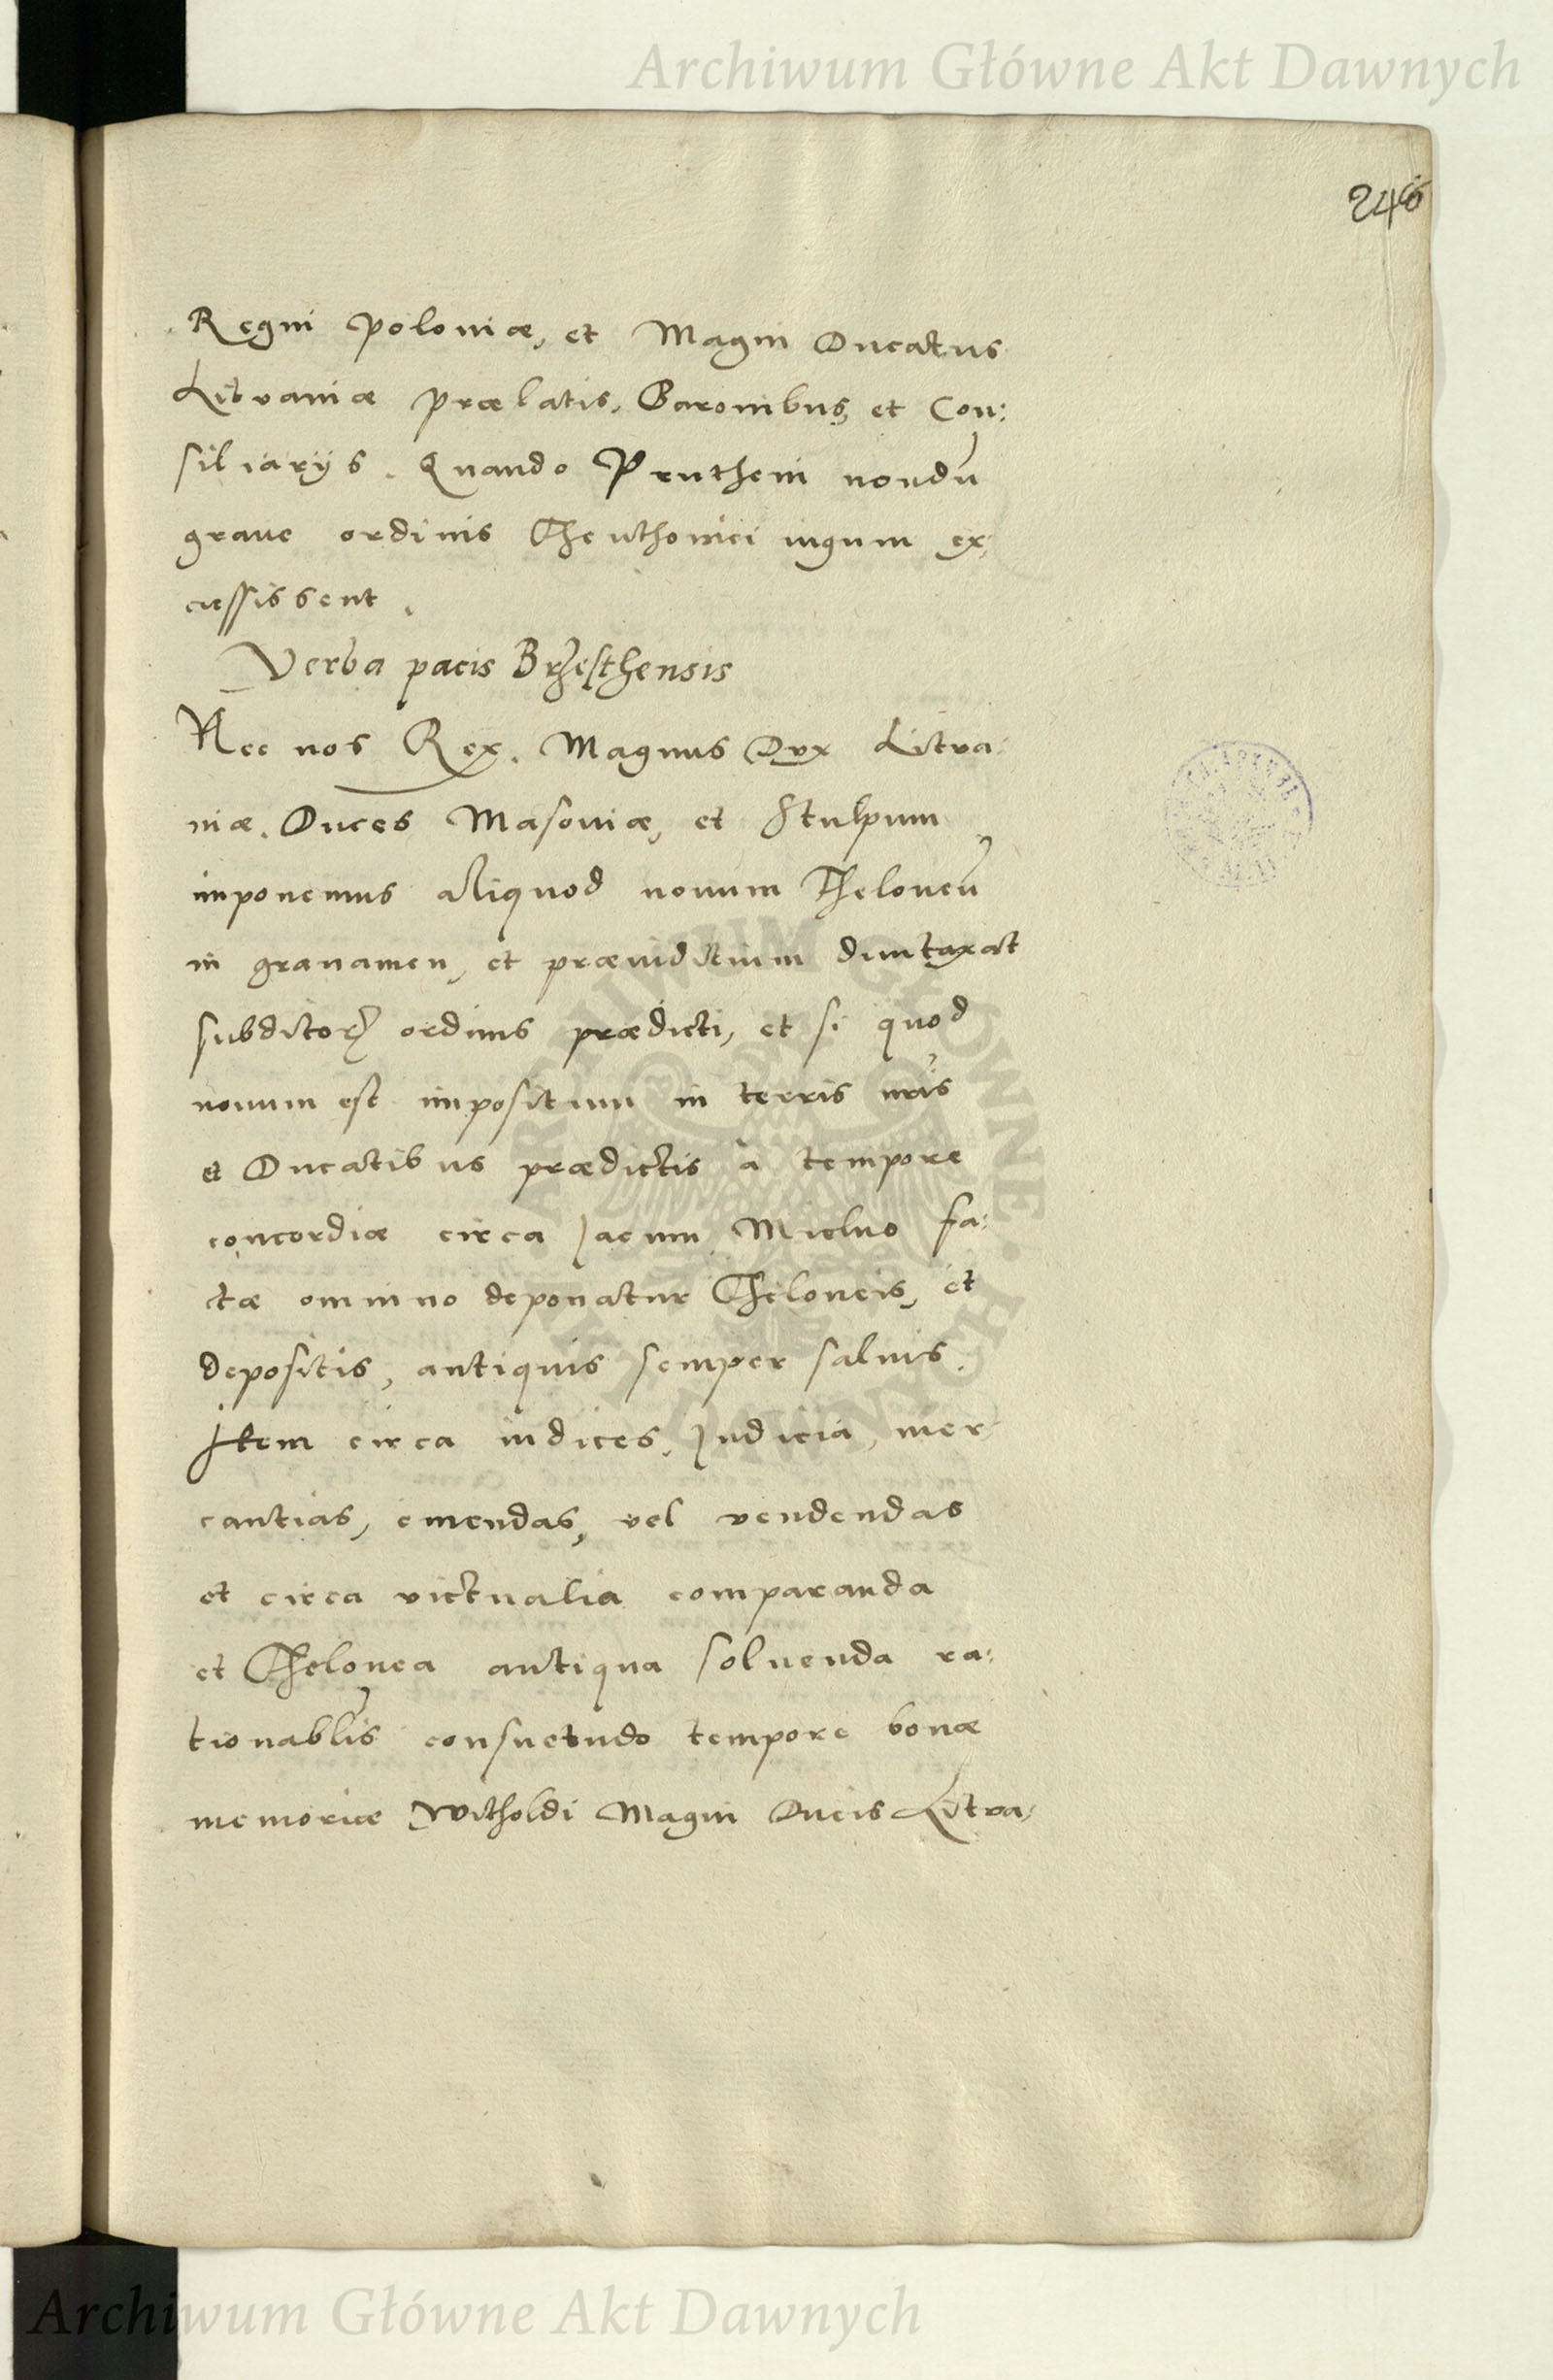 Archiwum Główne Akt Dawnych
246
Regni Poloniæ, et Magni Ducatus
Litvaniæ Prælatis, Baronibus, et Con:
siliarijs. Quando Prutheni nondū
graue ordinis Theuthonici iugum ex:
cussissent.
Verba pacis Brzesthensis
Nec nos Rex, Magnus Dvx Litva:
niæ, Duces Masoviæ, et Stulpum
imponemus aliquod nouum Theloneū
in grauamen, et præiuditium duntaxat
subditorꝝ ordinis prædicti, et si quod
nouum est impositum in terris nr̄is
et Ducatibus prædictis à tempore
concordiæ circa lacum Mielno fa:
ctæ omnino deponatur Theloneis, et
depositis, antiquis semper saluis.
Item circa iudices, Judicia, mer-
cantias, emendas, vel vendendas
et circa victualia comparanda
et Thelonea antiqua soluenda ra:
tionabl̄is consuetudo tempore bonæ
memoriæ Witholdi Magni Ducis Litva:
Archiwum Główne Akt Dawnych